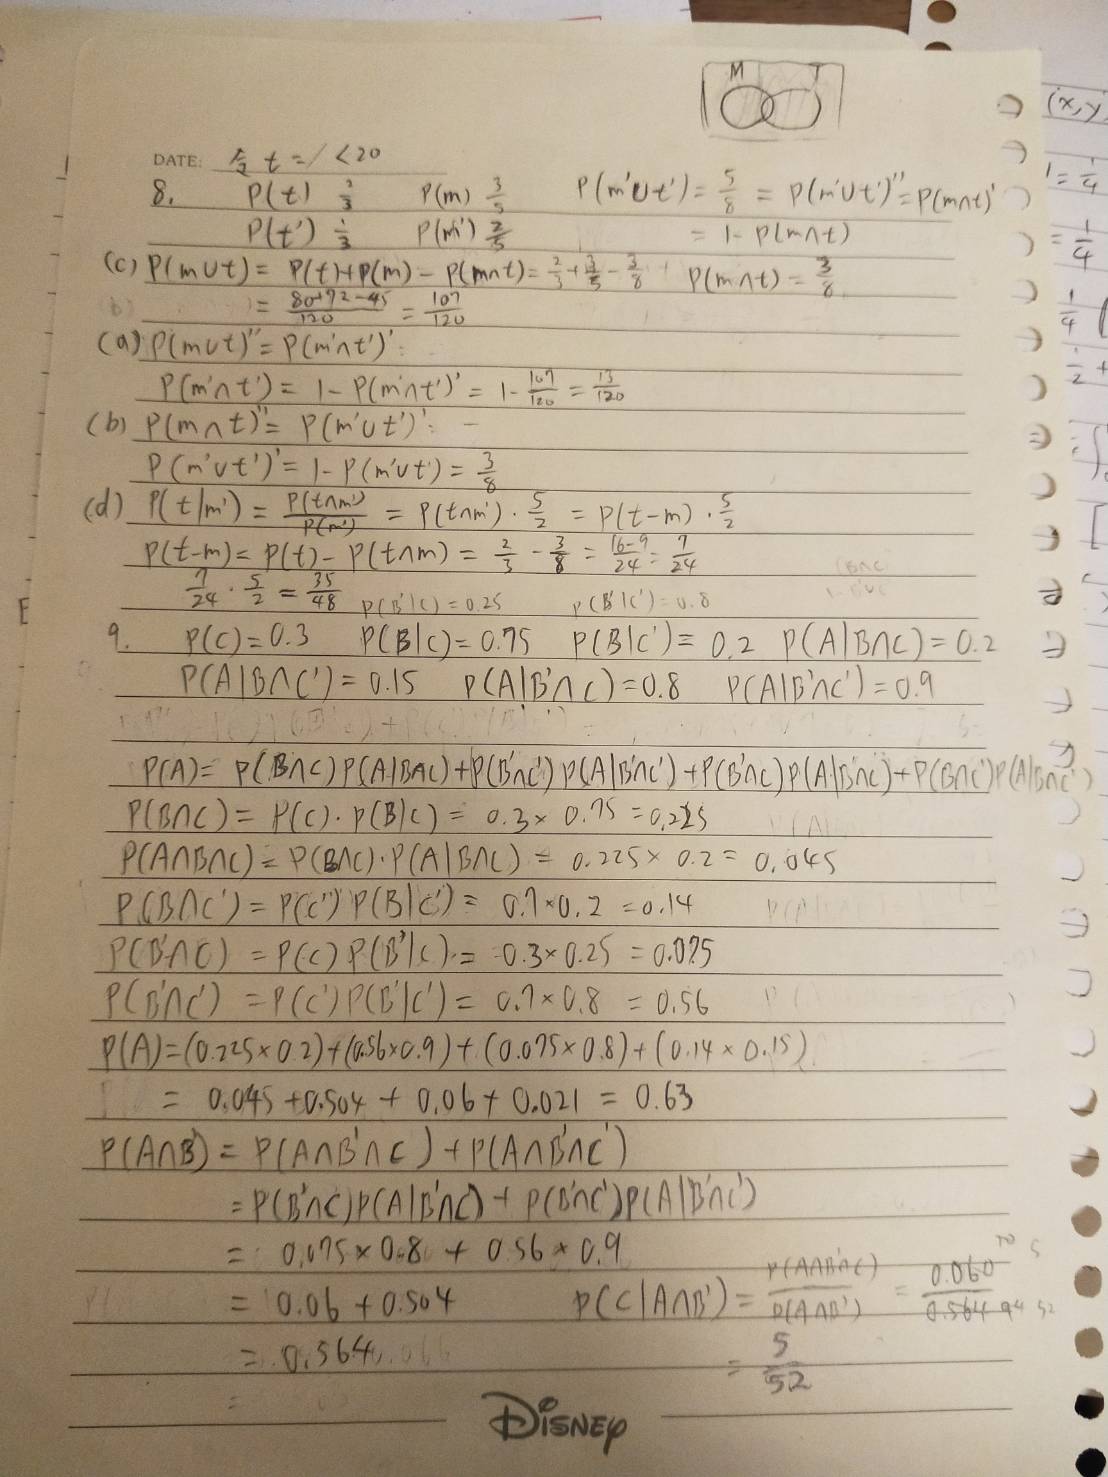 M T
DATE: 令 t = / <20
8. P(t) 2/3 P(m) 3/5 P(m'∪t') = 5/8 = P(m'∪t')'' = P(m∩t)'
P(t') 1/3 P(m') 2/5 = 1 - P(m∩t)
(c) P(m∪t) = P(t)+P(m) - P(m∩t) = 2/3 + 3/5 - 3/8 P(m∩t) = 3/8
= 80+72-45/120 = 107/120
(a) P(m∪t)'' = P(m'∩t')'
P(m'∩t') = 1 - P(m'∩t')' = 1 - 107/120 = 13/120
(b) P(m∩t)'' = P(m'∪t')'
P(m'∪t')' = 1 - P(m'∪t') = 3/8
(d) P(t|m') = P(t∩m')/P(m') = P(t∩m') · 5/2 = P(t-m) · 5/2
P(t-m) = P(t) - P(t∩m) = 2/3 - 3/8 = 16-9/24 = 7/24
7/24 · 5/2 = 35/48 P(B'|C) = 0.25 P(B'|C') = 0.8
9. P(C) = 0.3 P(B|C) = 0.75 P(B|C') = 0.2 P(A|B∩C) = 0.2
P(A|B∩C') = 0.15 P(A|B'∩C) = 0.8 P(A|B'∩C') = 0.9
P(A) = P(B∩C)P(A|B∩C)+P(B'∩C')P(A|B'∩C')+P(B'∩C)P(A|B'∩C)+P(B∩C')P(A|B∩C')
P(B∩C) = P(C)·P(B|C) = 0.3 × 0.75 = 0.225
P(A∩B∩C) = P(B∩C)·P(A|B∩C) = 0.225 × 0.2 = 0.045
P(B∩C') = P(C')P(B|C') = 0.7×0.2 = 0.14
P(B'∩C) = P(C)P(B'|C) = 0.3×0.25 = 0.075
P(B'∩C') = P(C')P(B'|C') = 0.7×0.8 = 0.56
P(A) = (0.225×0.2)+(0.56×0.9)+(0.075×0.8)+(0.14×0.15)
= 0.045+0.504+0.06+0.021 = 0.63
P(A∩B') = P(A∩B'∩C)+P(A∩B'∩C')
= P(B'∩C)P(A|B'∩C)+P(B'∩C')P(A|B'∩C')
= 0.075×0.8 + 0.56×0.9
= 0.06+0.504 P(C|A∩B') = P(A∩B'∩C)/P(A∩B') = 0.060/0.564
= 0.564 = 5/52
DISNEY